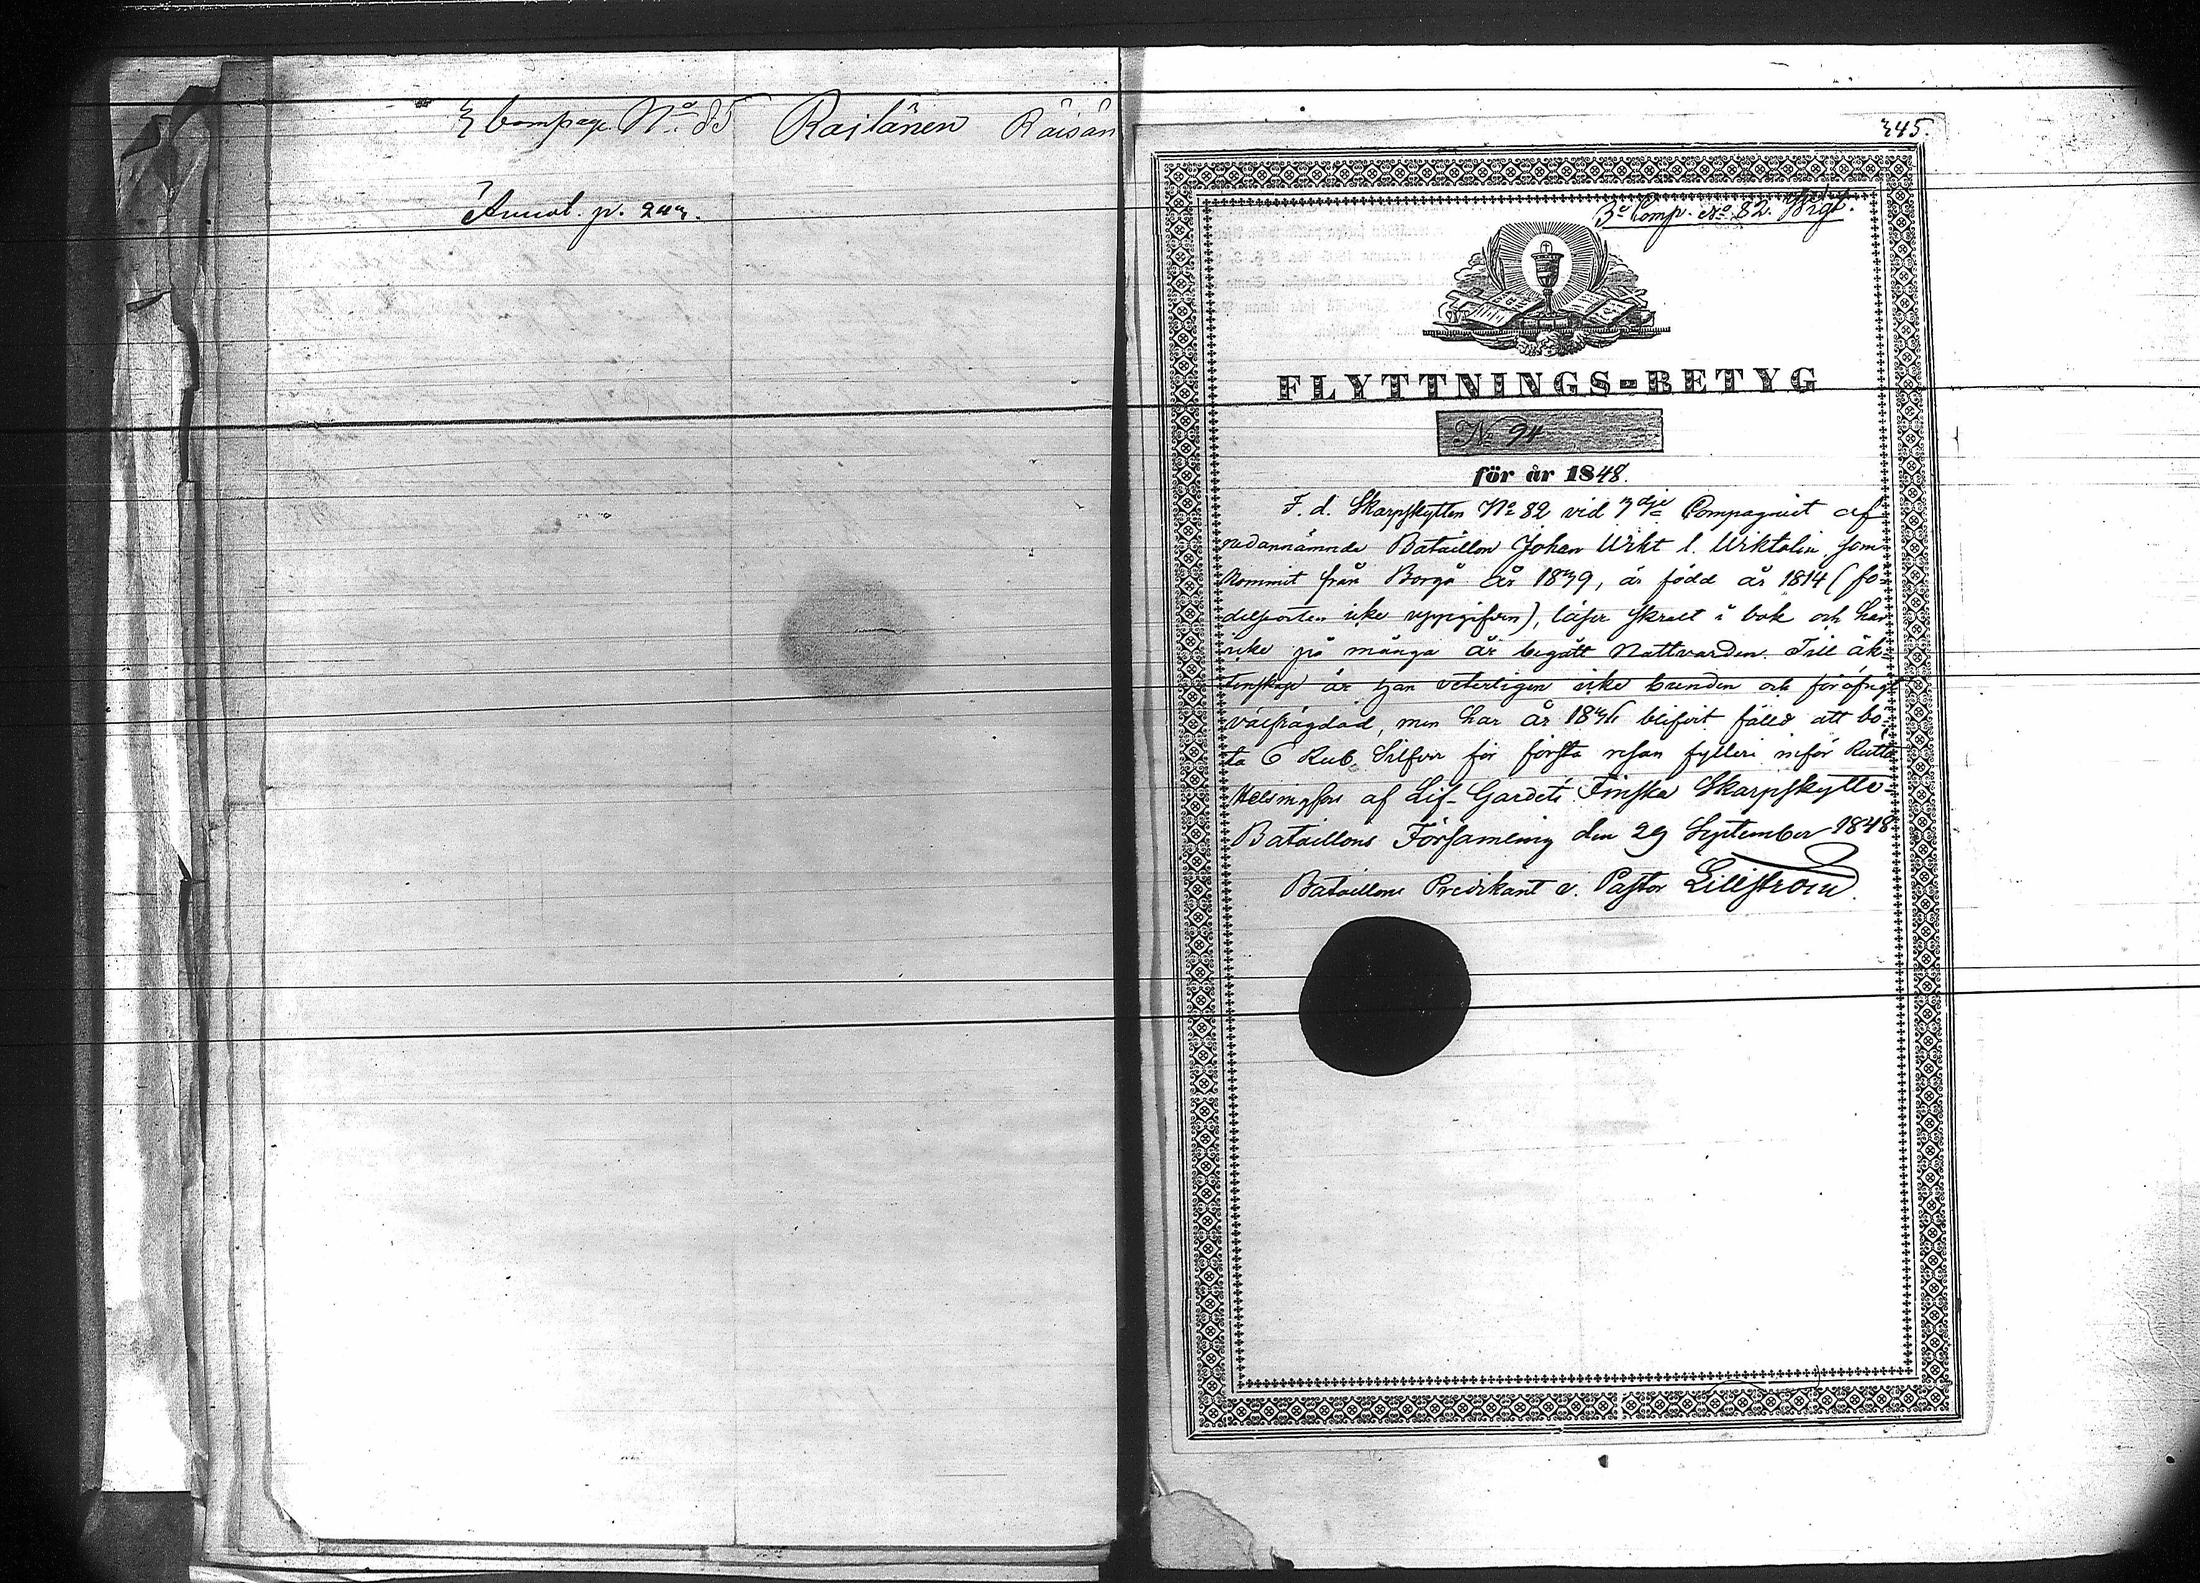 3 Compage. No. 85 Raitänen Räisän
Annot. p. 243.
345.
3e Comp. No 82.
FLYTTNINGS-BETYG
No 94
för år 1848.
F. d. Skarpskytten No 82 vid 3dje Compagniet af
nedannämnde Bataillon Johan Wikt l. Wiktolin, som
kommit från Borgå år 1839, är född år 1814 (fö-
delseorten icke uppgifven), läser skralt i bok och har
icke på många år begått Nattvarden. Till äk-
tenskap är han veterligen icke bunden och föröfrigt
välfrägdad, men har år 1836 blifvit fälld att bö-
ta 6 Rub. Silfver för första resan fylleri inför Rätta
Helsingfors af Lif-Gardets Finska Skarpskytte-
Bataillons Församling den 29 September 1848
Bataillons Predikant v. Pastor Lillström.